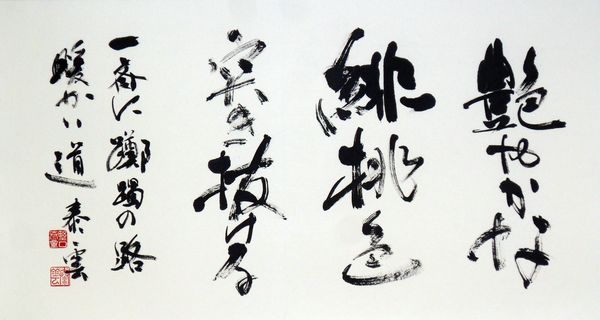 艶やかな
緋桃色
突き抜ける
一斉に躑躅の路
暖かい道 泰雲